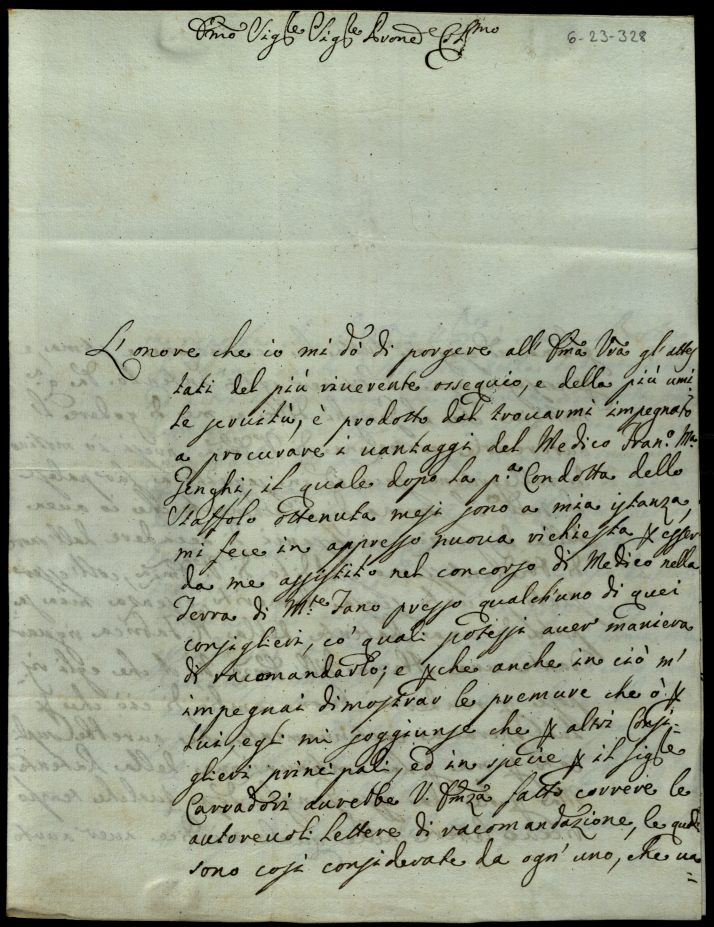 Emo Sigre Sigre Prone Colmo
6-23-328
L'onore che io mi dò di porgere all' Emza Vra gl'attes
tati del più riuerente ossequio, e della più umi
le seruitù, è prodotto dal trouarmi impegnato
a procurare i uantaggi del Medico Frano. Ma
Genghi, il quale dopo la pa. Condotta dello
Staffolo ottenuta mesi sono a mia istanza,
mi fece in appresso nuoua richiesta p esser
da me assistito nel concorso di Medico nella
Terra di Mte. Fano presso qualch'uno di quei
consiglieri, co' quali potessi auer maniera
di racomandarlo; e pche anche in ciò m'
impegnai dimostrar le premure che ò p
lui, egli mi soggiunse che p altri Consi-
glieri principali, ed in specie p il Sigre
Carradori aurebbe V. Emza fatto correre le
autoreuoli lettere di racomandazione, le quali
sono così considerate da ogn' uno, che ua
=